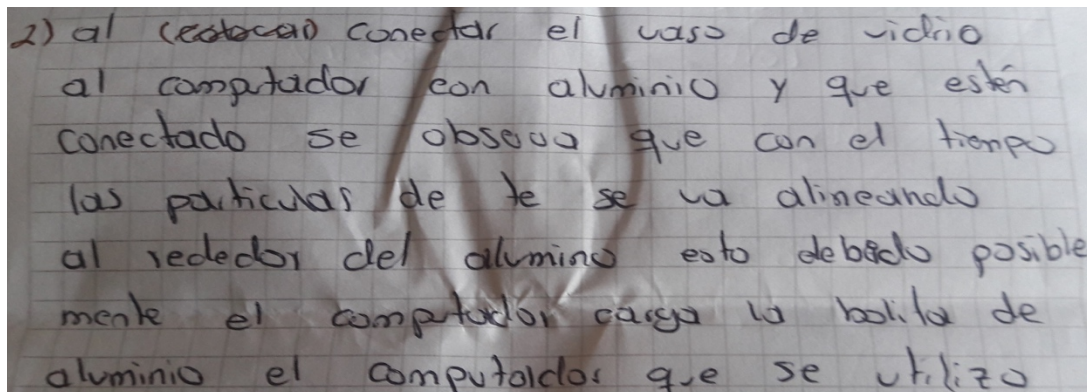 2) al (colocar) conectar el vaso de vidrio
al computador con aluminio y que estén
conectado se observa que con el tiempo
las particulas de te se va alineando
al rededor del alumino esto debedo posible
mente el computador carga la bolita de
aluminio el computador que se utilizo